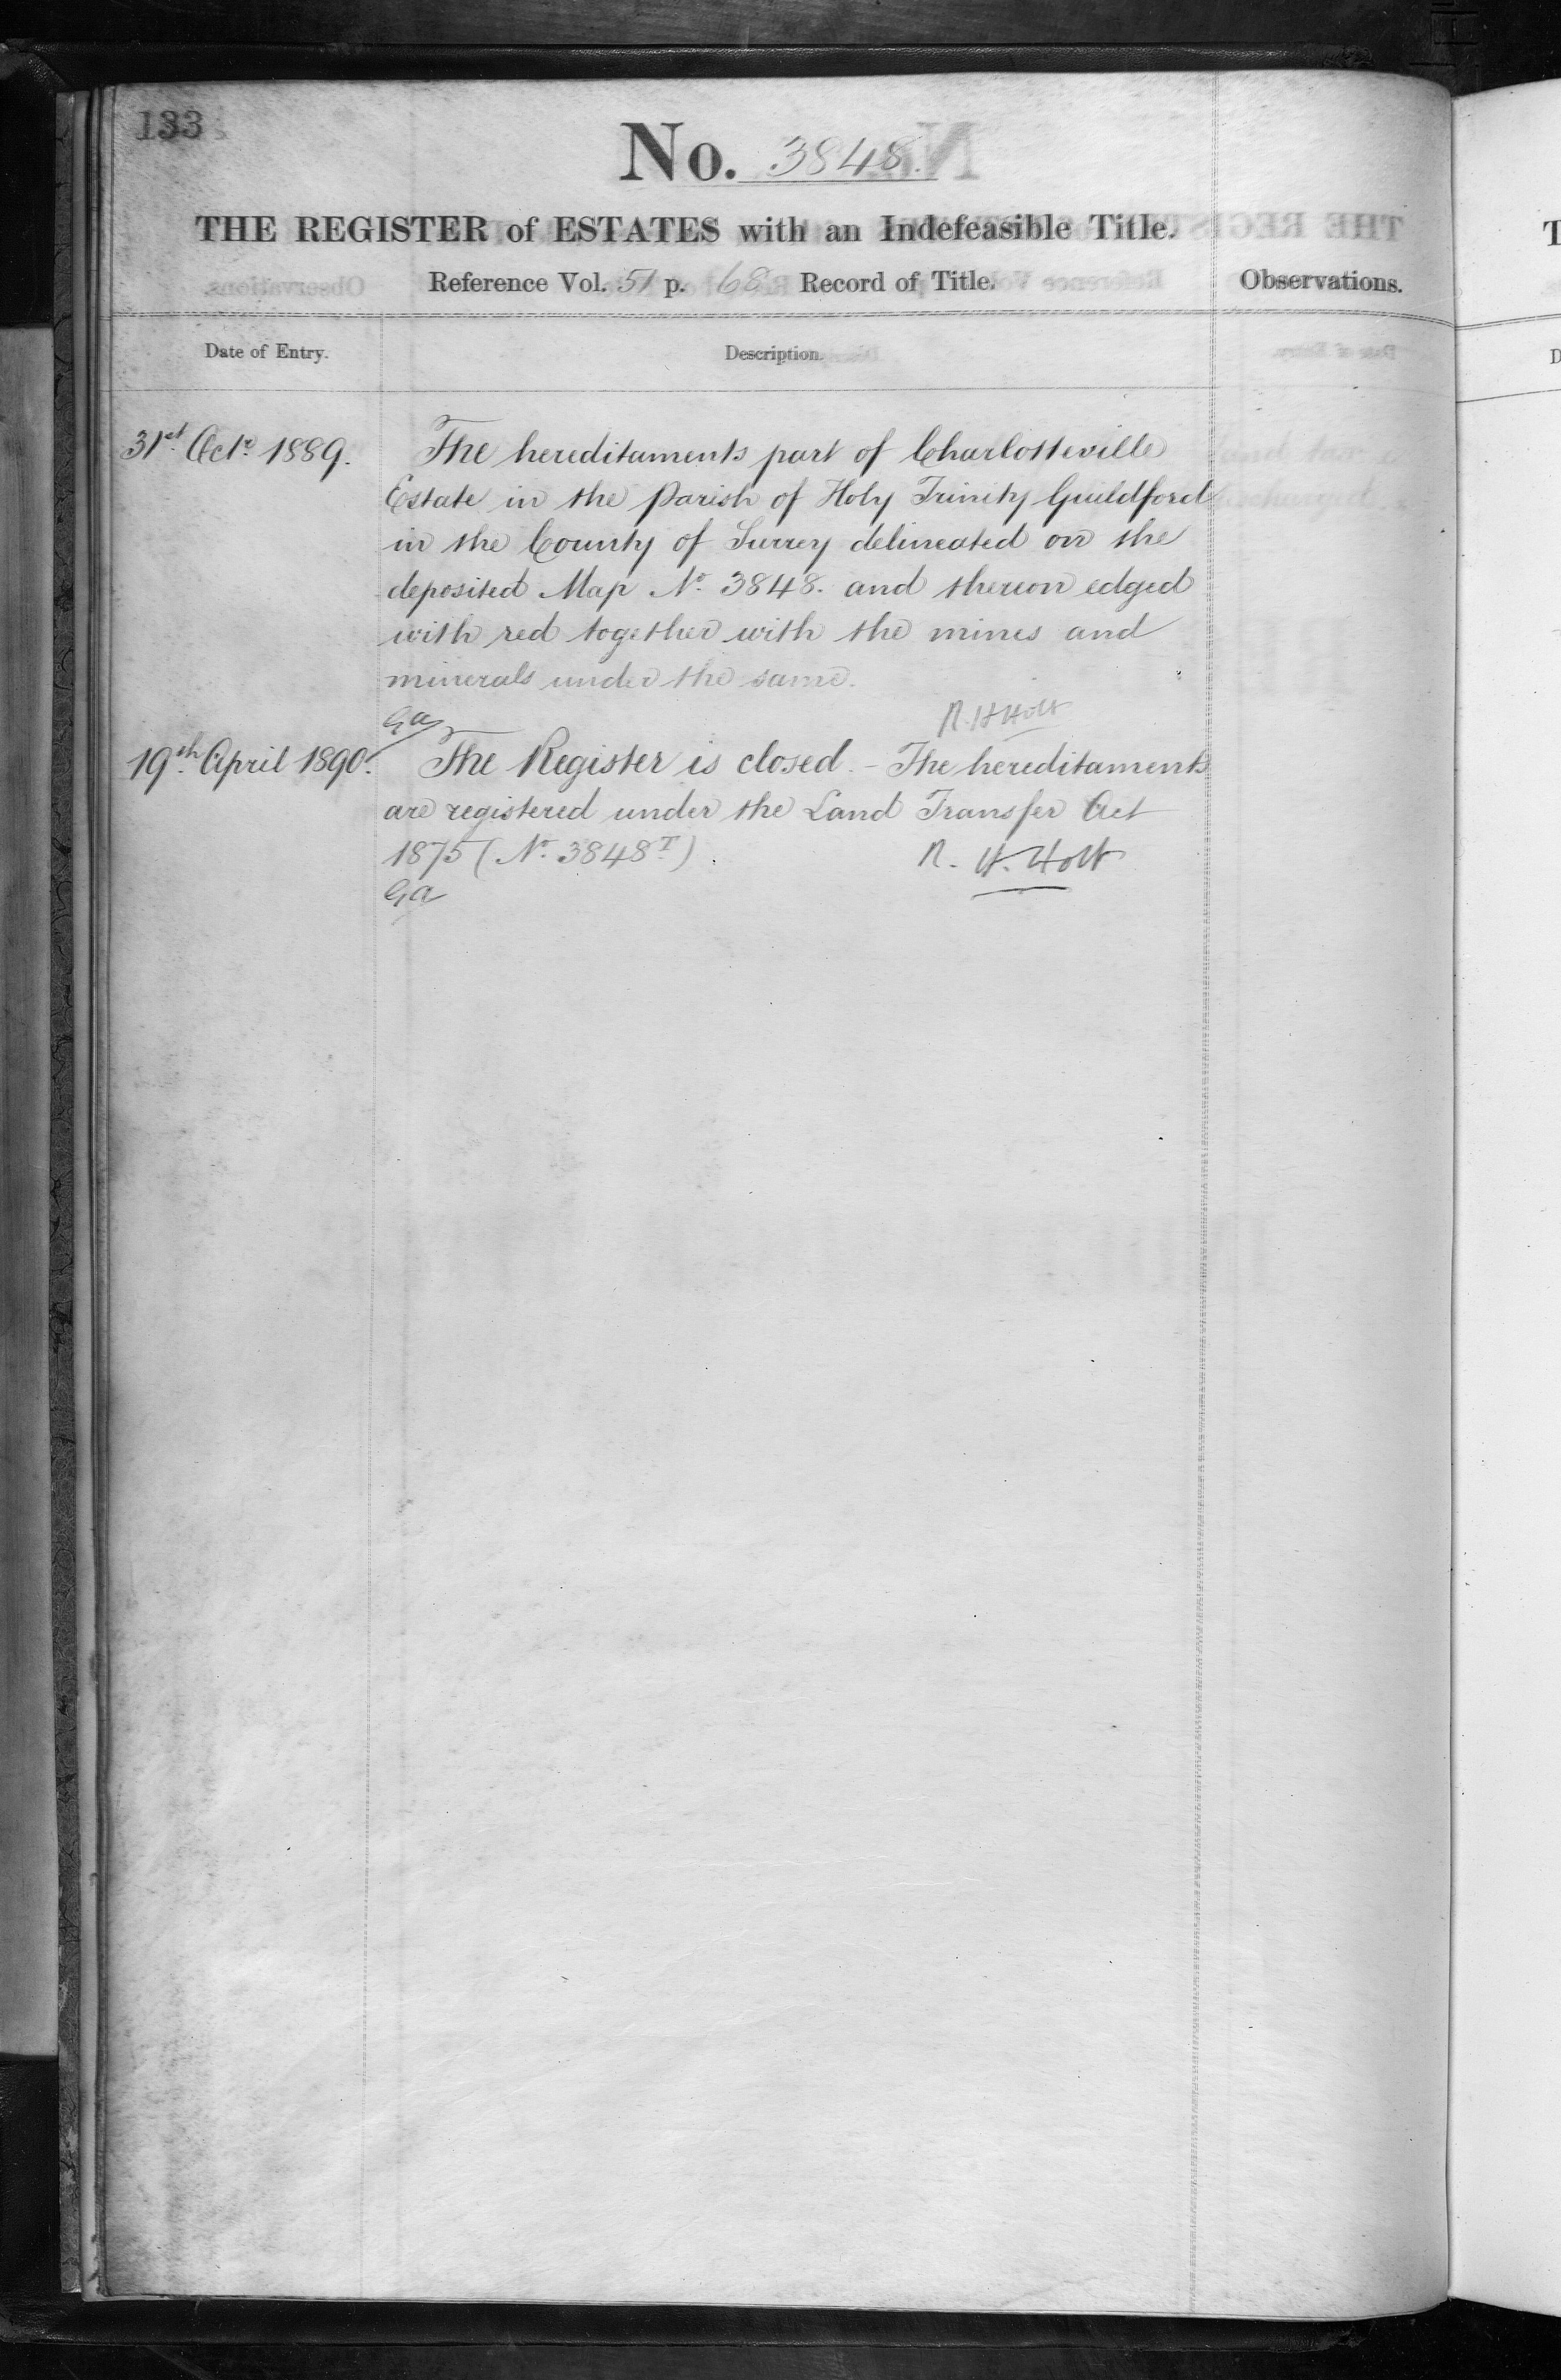 133
No. 3848.
THE REGISTER of ESTATES with an Indefeasible Title.
Reference Vol. 51 p. 68 Record of Title.
Observations.
Date of Entry.
Description.
31st Octr. 1889.
The hereditaments part of Charlotteville
Estate in the Parish of Holy Trinity Guildford
in the County of Surrey delineated on the
deposited Map No. 3848. and thereon edged
with red together with the mines and
minerals under the same.
Ga
R. H Holt
19th. April 1890.
The Register is closed. - The hereditaments
are registered under the Land Transfer Act
1875 (No. 3848T.)
R. H. Holt
Ga